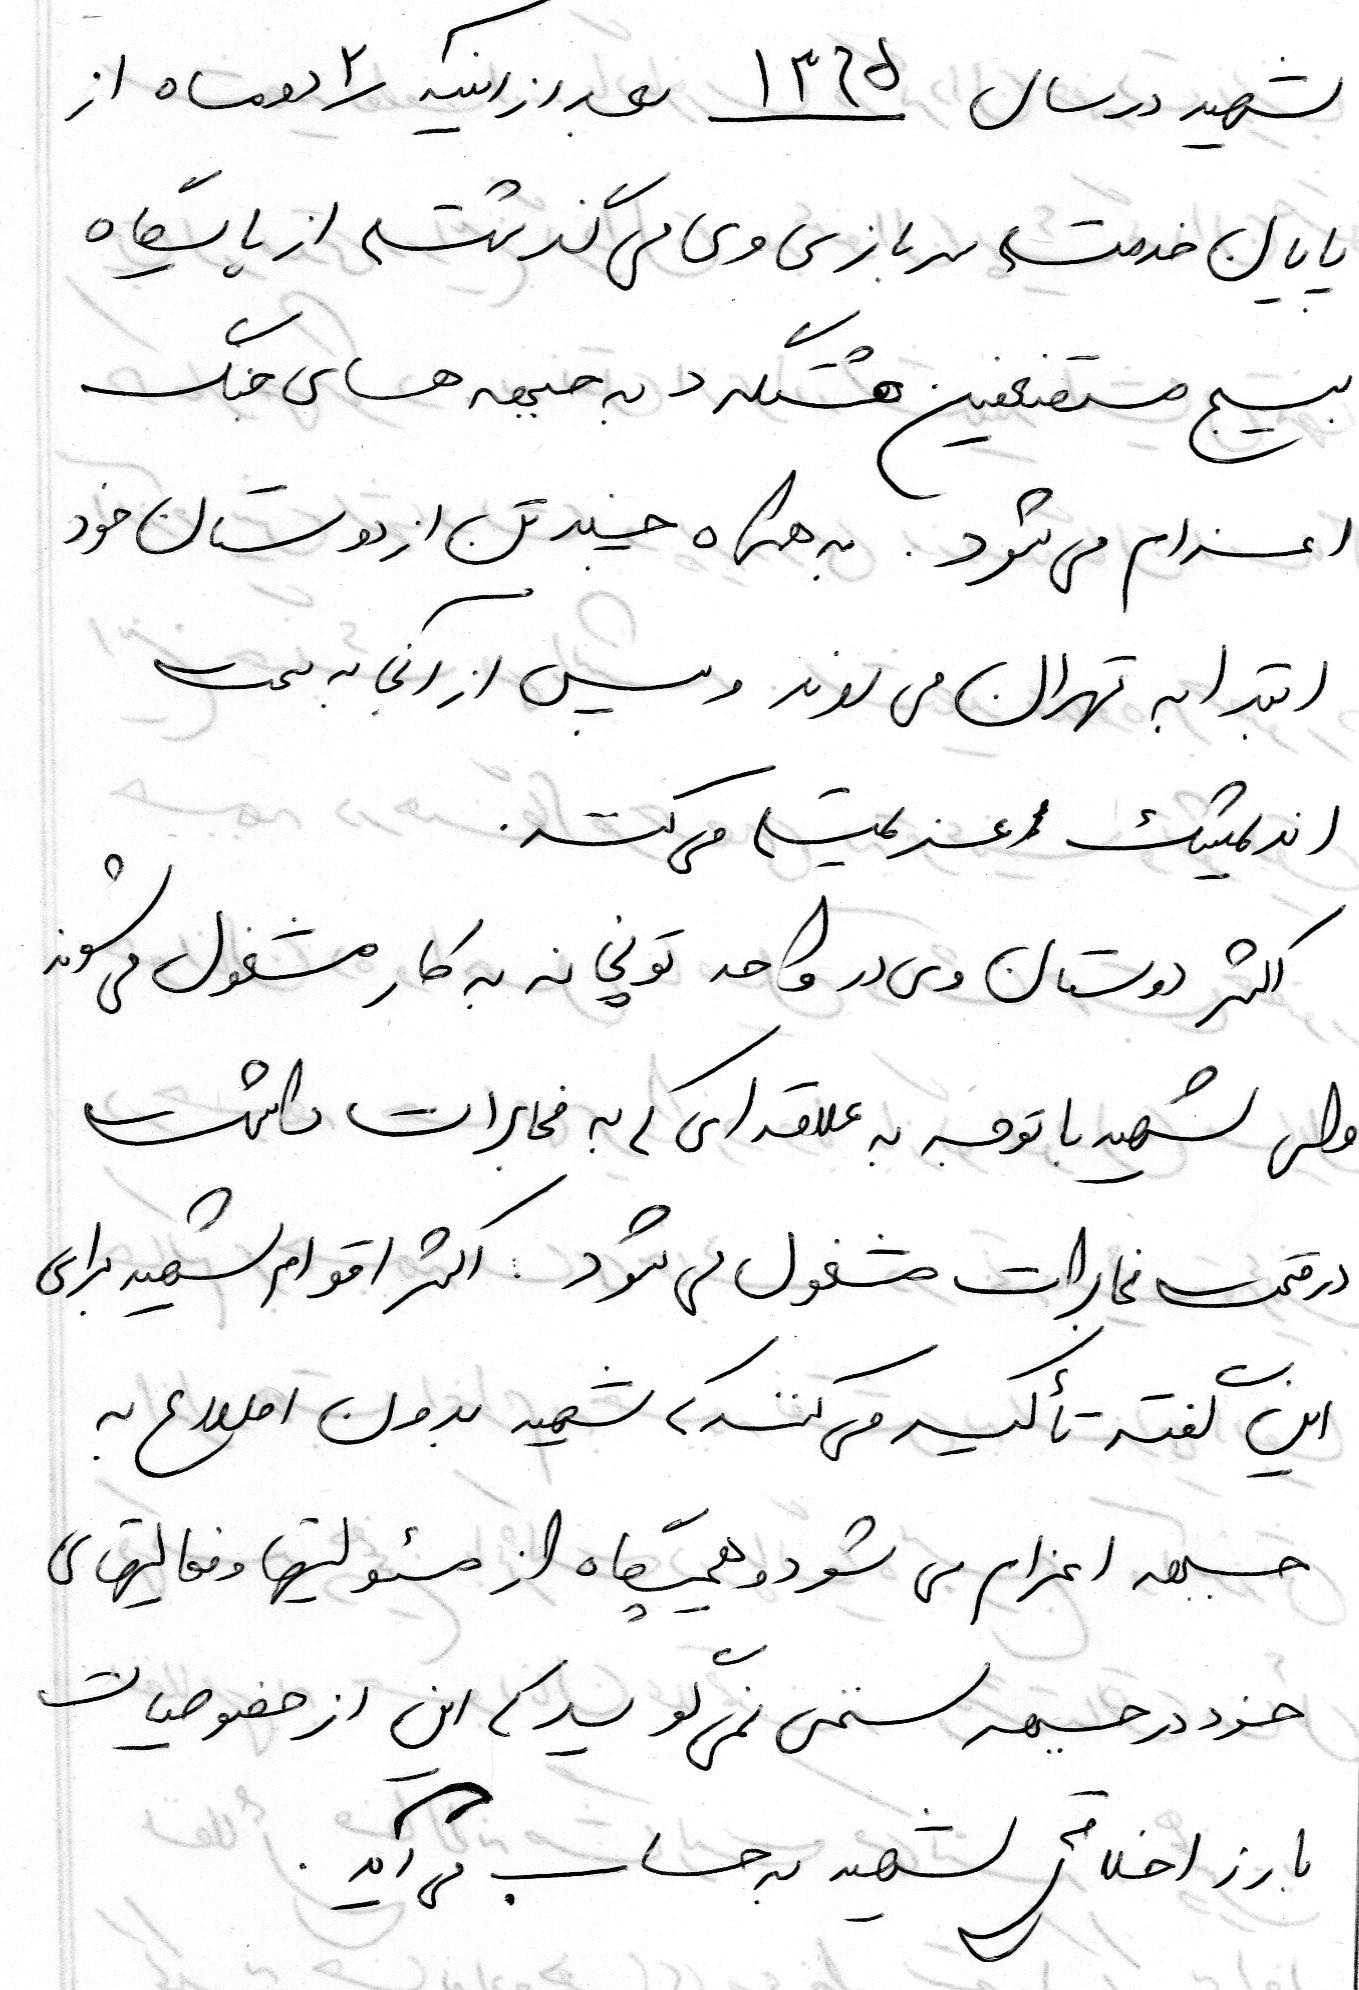 شهید در سال ۱۳۶۵ بعد از اینکه ۲ دو ماه از
پایان خدمت سربازی وی می گذشت از پایگاه
بسیج مستضعفین هشتگرد به جبهه های جنگ
اعزام می شود . به همراه چند تن از دوستان خود
ابتدا به تهران می روند و سپس از آنجا به سمت
اندیمشک عزیمت می کنند .
اکثر دوستان وی در واحد توپخانه به کار مشغول می شوند
ولی شهید با توجه به علاقه ای که به مخابرات داشت
در قسمت مخابرات مشغول می شود . اکثر اقوام شهید برای
این گفته تأکید می کنند که شهید بدون اطلاع به
جبهه اعزام می شود و هیچگاه از مسئولیتها و فعالیتهای
خود در جبهه سخنی نمی گوید که این از خصوصیات
بارز اخلاقی شهید به حساب می آید .